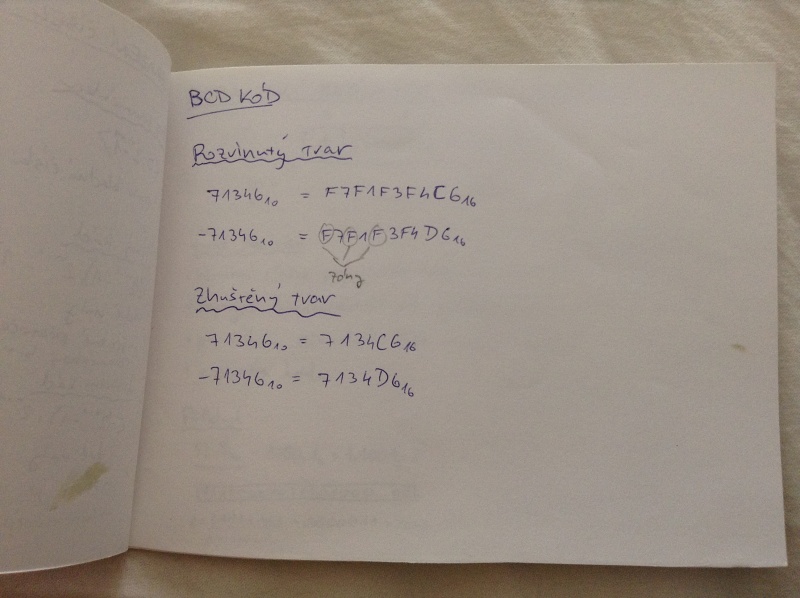 BCD KÓD
Rozvinutý tvar
71346₁₀ = F7F1F3F4C6₁₆
-71346₁₀ = F7F1F3F4D6₁₆
zóny
Zhuštěný tvar
71346₁₀ = 7134C6₁₆
-71346₁₀ = 7134D6₁₆